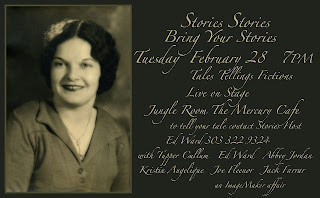 Stories Stories
Bring Your Stories
Tuesday February 28 7PM
Tales Tellings Fictions
Live on Stage
Jungle Room The Mercury Cafe
to tell your tale contact Stories Host
Ed Ward 303 322 9324
with Tupper Cullum Ed Ward Abbey Jordan
Kristin Angelique Joe Fleenor Jack Farrar
an ImageMaker affair